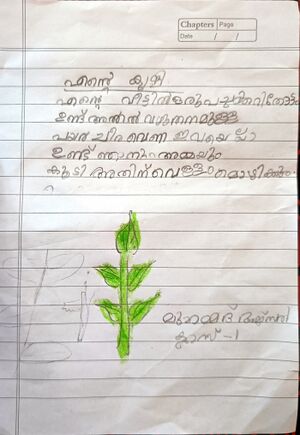 Chapters Page
Date / /
എന്റെ കൃഷി
എന്റെ വീട്ടിൽ ഒരു പച്ചക്കറിതോട്ടം
ഉണ്ട് അതിൽ വഴുതനമുളള
പയർ ചീര വെണ്ട ഇവയെല്ലാ
ഉണ്ട് ഞാനും അമ്മയും
കൂടി അതിന് വെള്ളം മൊഴിക്കും
മുഹമ്മദ്
ക്ലാസ് -1